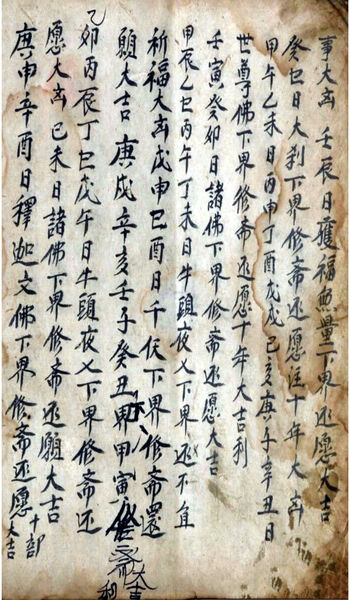 事大吉 壬辰日獲福無量下界还愿大吉
癸巳日大刹下界修斋还愿注十年大吉
甲午乙未日丙申丁酉戊戌己亥庚子辛丑日
世尊佛下界修斋还愿十年大吉利
壬寅癸卯日諸佛下界修斋还愿大吉
甲辰乙巳丙午丁未日牛頭夜乂下界还不宜
祈福大吉戊申己酉日千伕下界修斋還
願大吉 庚戌辛亥壬子癸丑甲寅 修斋大吉利
乙卯丙辰丁巳戊午日牛頭夜乂下界修斋还
愿大吉己未日諸佛下界修斋还願大吉
庚申辛酉日釋迦文佛下界修斋还愿大吉